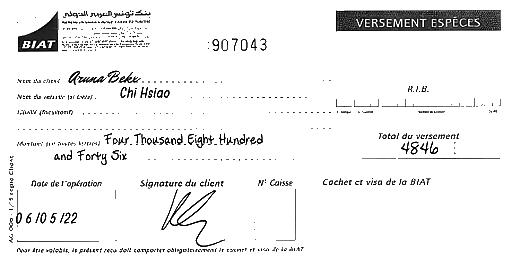 بنك تونس العربي الدولي
BIAT
VERSEMENT ESPÈCES
907043
Nom du client Aruna Beku
Nom du remettant (si tiers) Chi Hsiao
R.I.B.
Libellé (facultatif)
Montant (en toutes lettres) Four Thousand Eight Hundred
and Forty Six
Total du versement
4846
Date de l'opération
Signature du client
N° Caisse
Cachet et visa de la BIAT
06/05/22
Pour être valable, le présent recu doit comporter obligatoirement le cachet et visa de la BIAT